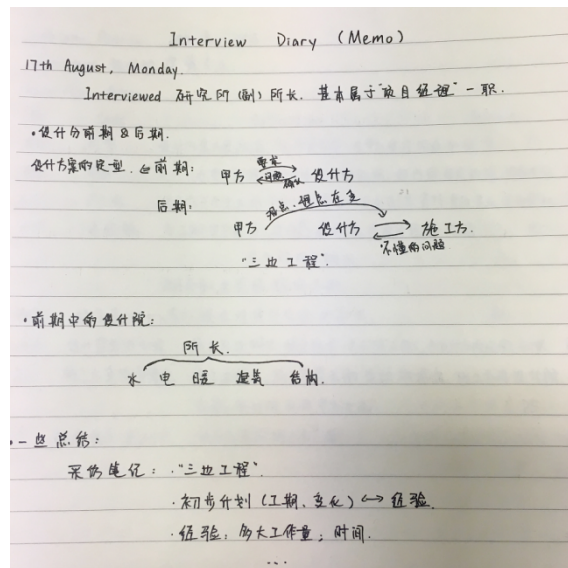 Interview Diary (Memo)
17th August, Monday.
Interviewed 研究所(副)所长. 基本属于"项目经理"一职.
·设计分前期&后期.
设计方案的定型. 前期: 甲方 要求 问题 设计方
后期:
甲方 设计方 施工方.
不懂的问题
"三边工程".
·前期中的设计院:
所长.
水 电 暖 建筑 结构.
·一些总结:
采访笔记: ·"三边工程".
·初步计划(工期、变化) ↔ 经验.
·经验: 多大工作量; 时间.
...